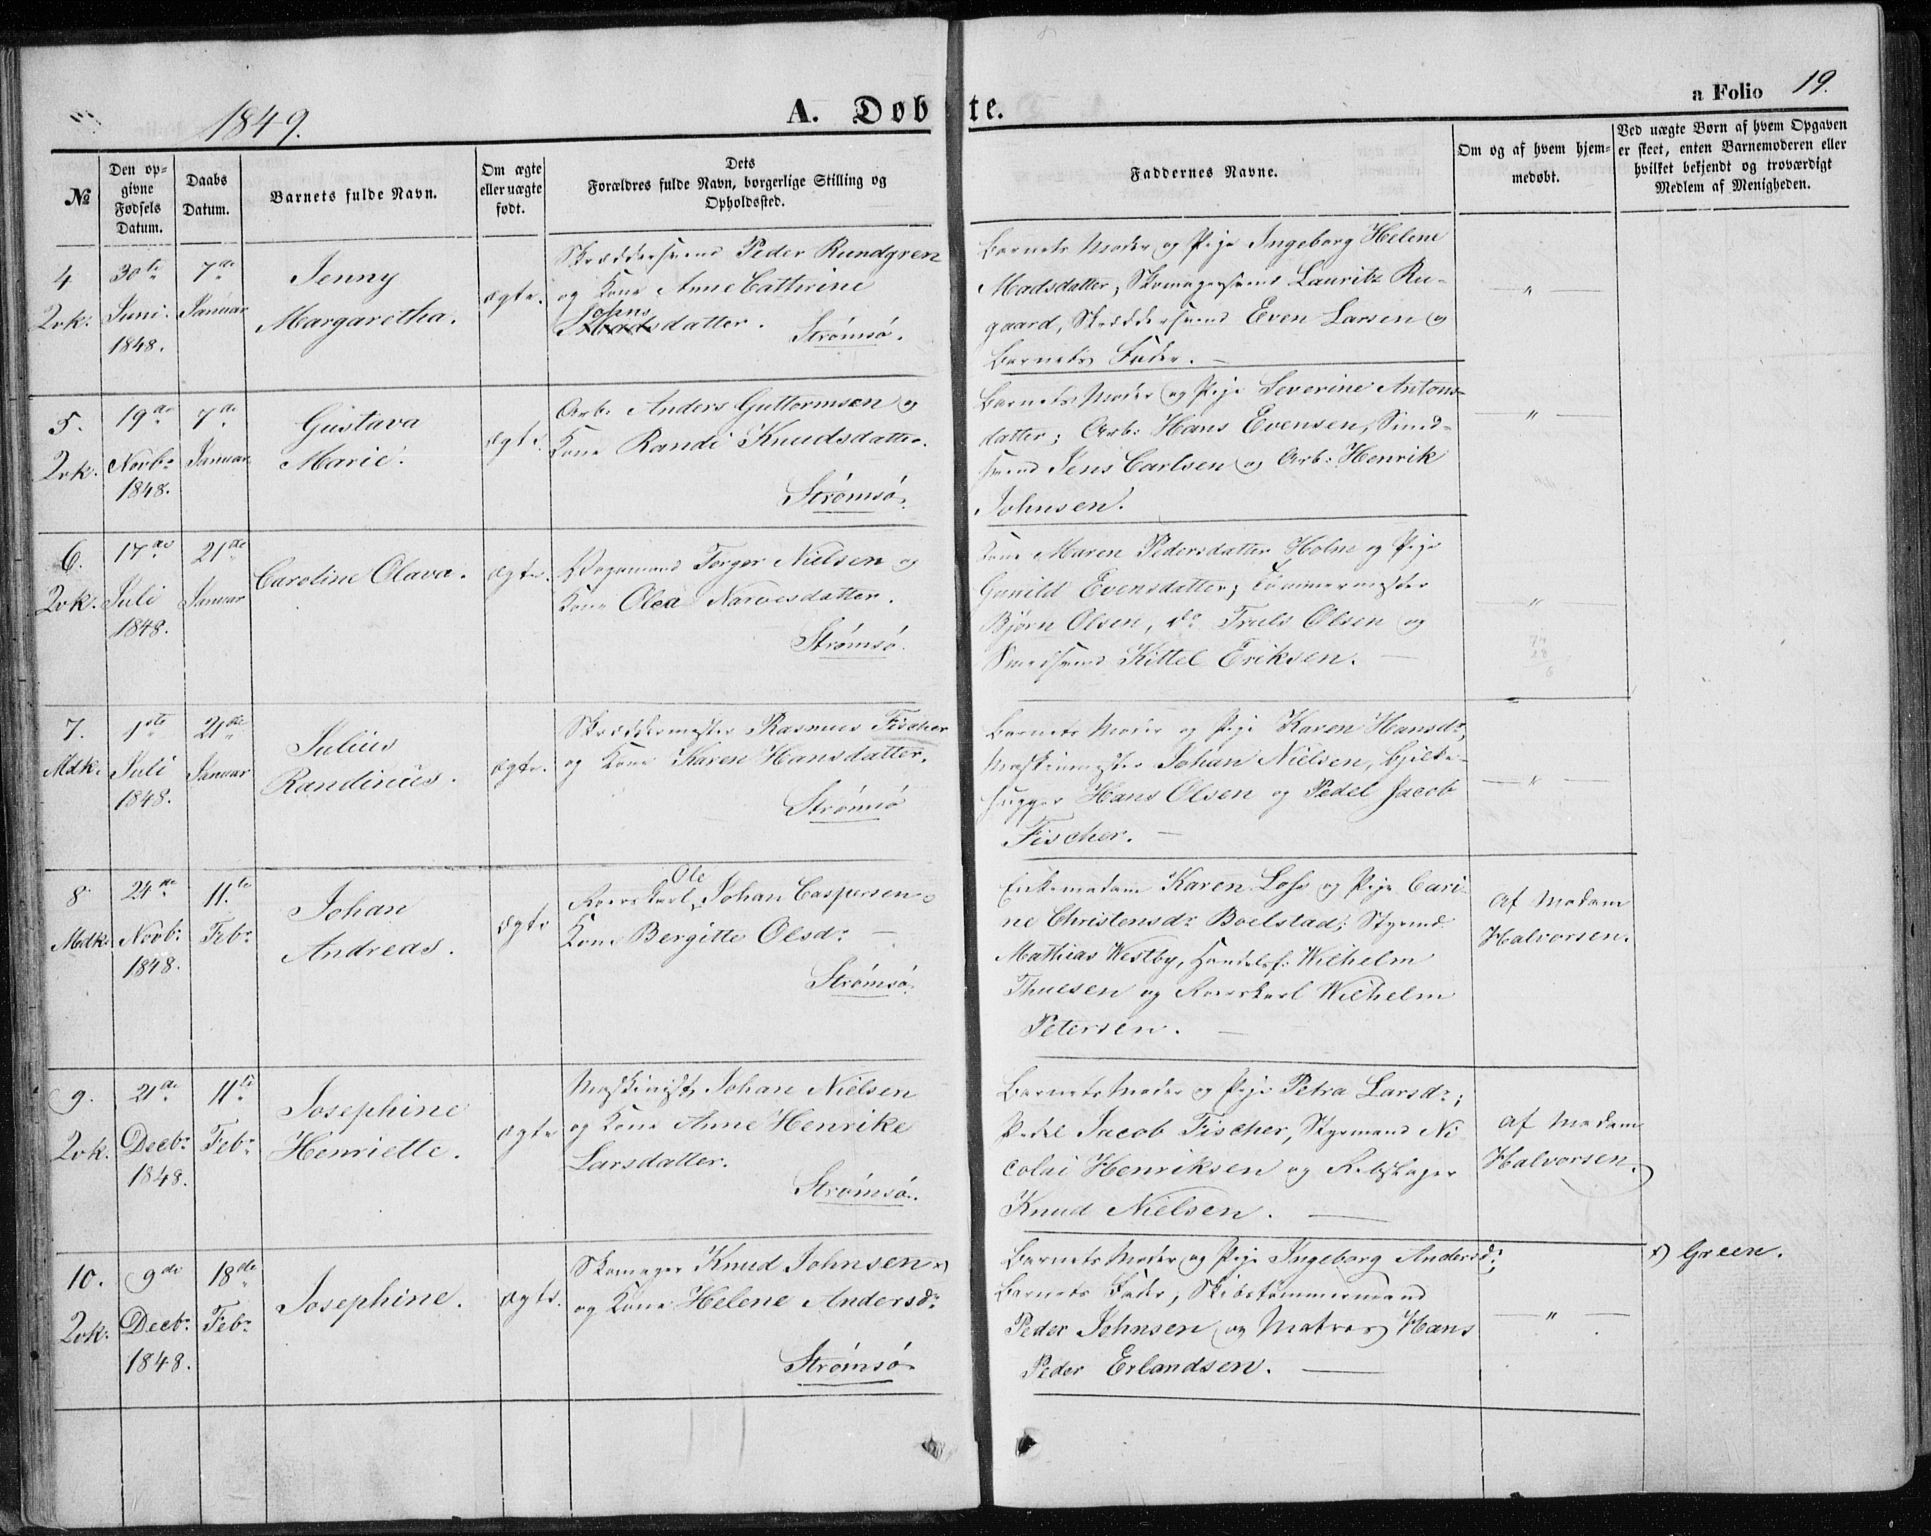 1849.
A. Døbte.
a Folio 19.
№
Den op-
givne
Fødsels
Datum.
Daabs
Datum.
Barnets fulde Navn.
Om ægte
eller uægte
født.
Dets
Forældres fulde Navn, borgerlige Stilling og
Opholdssted.
Faddernes Navne.
Om og af hvem hjem-
medøbt.
Ved uægte Børn af hvem Opgaven
er skeet, enten Barnemoderen eller
hvilket bekjendt og troværdigt
Medlem af Menigheden.
4
Qvk.
30te
Juni.
1848.
7de
Januar
Jenny
Margaretha.
ægte.
Skræddersvend Peder Rundgren
og Kone Anne Cathrine
Johns
Madsdatter.
Strømsø.
Barnets Moder og Pige Ingeborg Helene
Madsdatter, Skomagersvend Lauritz Ru-
gaard, Skræddersvend Even Larsen og
Barnets Fader. —
— " —
5.
Qvk.
19de
Novbr
1848.
7de
Januar
Gustava
Marie.
ægte.
Arb. Anders Guttormsen og
Kone Randi Knudsdatter.
Strømsø.
Barnets Moder og Pige Severine Antons-
datter; Arb: Hans Evensen, Smed-
svend Jens Carlsen og Arb: Henrik
Johnsen.
— " —
6.
Qvk.
17de
Juli
1848.
21de
Januar
Caroline Olava.
ægte.
Vognmand Torger Nielsen og
Kone Olea Narvesdatter.
Strømsø.
Kone Maren Pedersdatter Holm og Pige
Gunild Evensdatter; Tømmermester
Bjørn Olsen, do Truls Olsen og
Smedsvend Kittel Eriksen. —
— " —
74
28
6
7.
Mdk.
1ste
Juli
1848.
21de
Januar
Julius
Randinius.
ægte.
Skræddermester Rasmus Fischer
og Kone Karen Hansdatter.
Strømsø
Barnets Moder og Pige Karen Hansdr,
Maskinmester Johan Nielsen, Bjelke-
hugger Hans Olsen og Pedel Jacob
Fischer. —
— " —
8
Mdk.
24de
Novbr
1848.
11te
Febr
Johan
Andreas.
ægte
Ole
Roerskarl Johan Caspersen o
Kone Bergitte Olsdr —
Strømsø.
Enkemadam Karen Lohs og Pige Cari-
ne Christensdr Boelstad; Styrmd
Mathias Westby, Handelsf: Wilhelm
Thuesen og Roerskarl Wilhelm
Petersen. —
Af Madam
Halvorsen.
9.
Qvk.
21de
Decbr
1848.
11te
Febr
Josephine
Henriette.
ægte
Maskinist Johan Nielsen
og Kone Anne Henrike
Larsdatter.
Strømsø.
Barnets Moder og Pige Petra Larsdr;
Pedel Jacob Fischer, Styrmand Ni-
colai Henriksen og Rebslager
Knud Nielsen. —
Af Madam
Halvorsen.
10.
Qvk.
9de
Decbr
1848.
18de
Febr
Josephine.
ægte.
Skomager Knud Johnsen x)
og Kone Helene Andersdr
Strømsø
Barnets Moder og Pige Ingeborg Andersdr;
Barnets Fader, Skibstømmermand
Peder Johnsen og Matros Hans
Peder Erlandsen. —
— " —
x) Green.